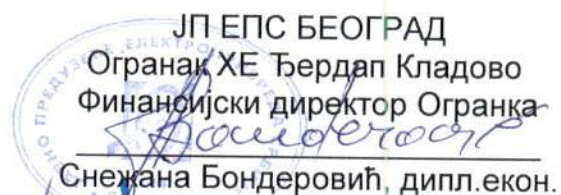 ЈП ЕПС БЕОГРАД
Огранак ХЕ Ђердап Кладово
Финансијски директор Огранка
Снежана Бондеровић, дипл.екон.